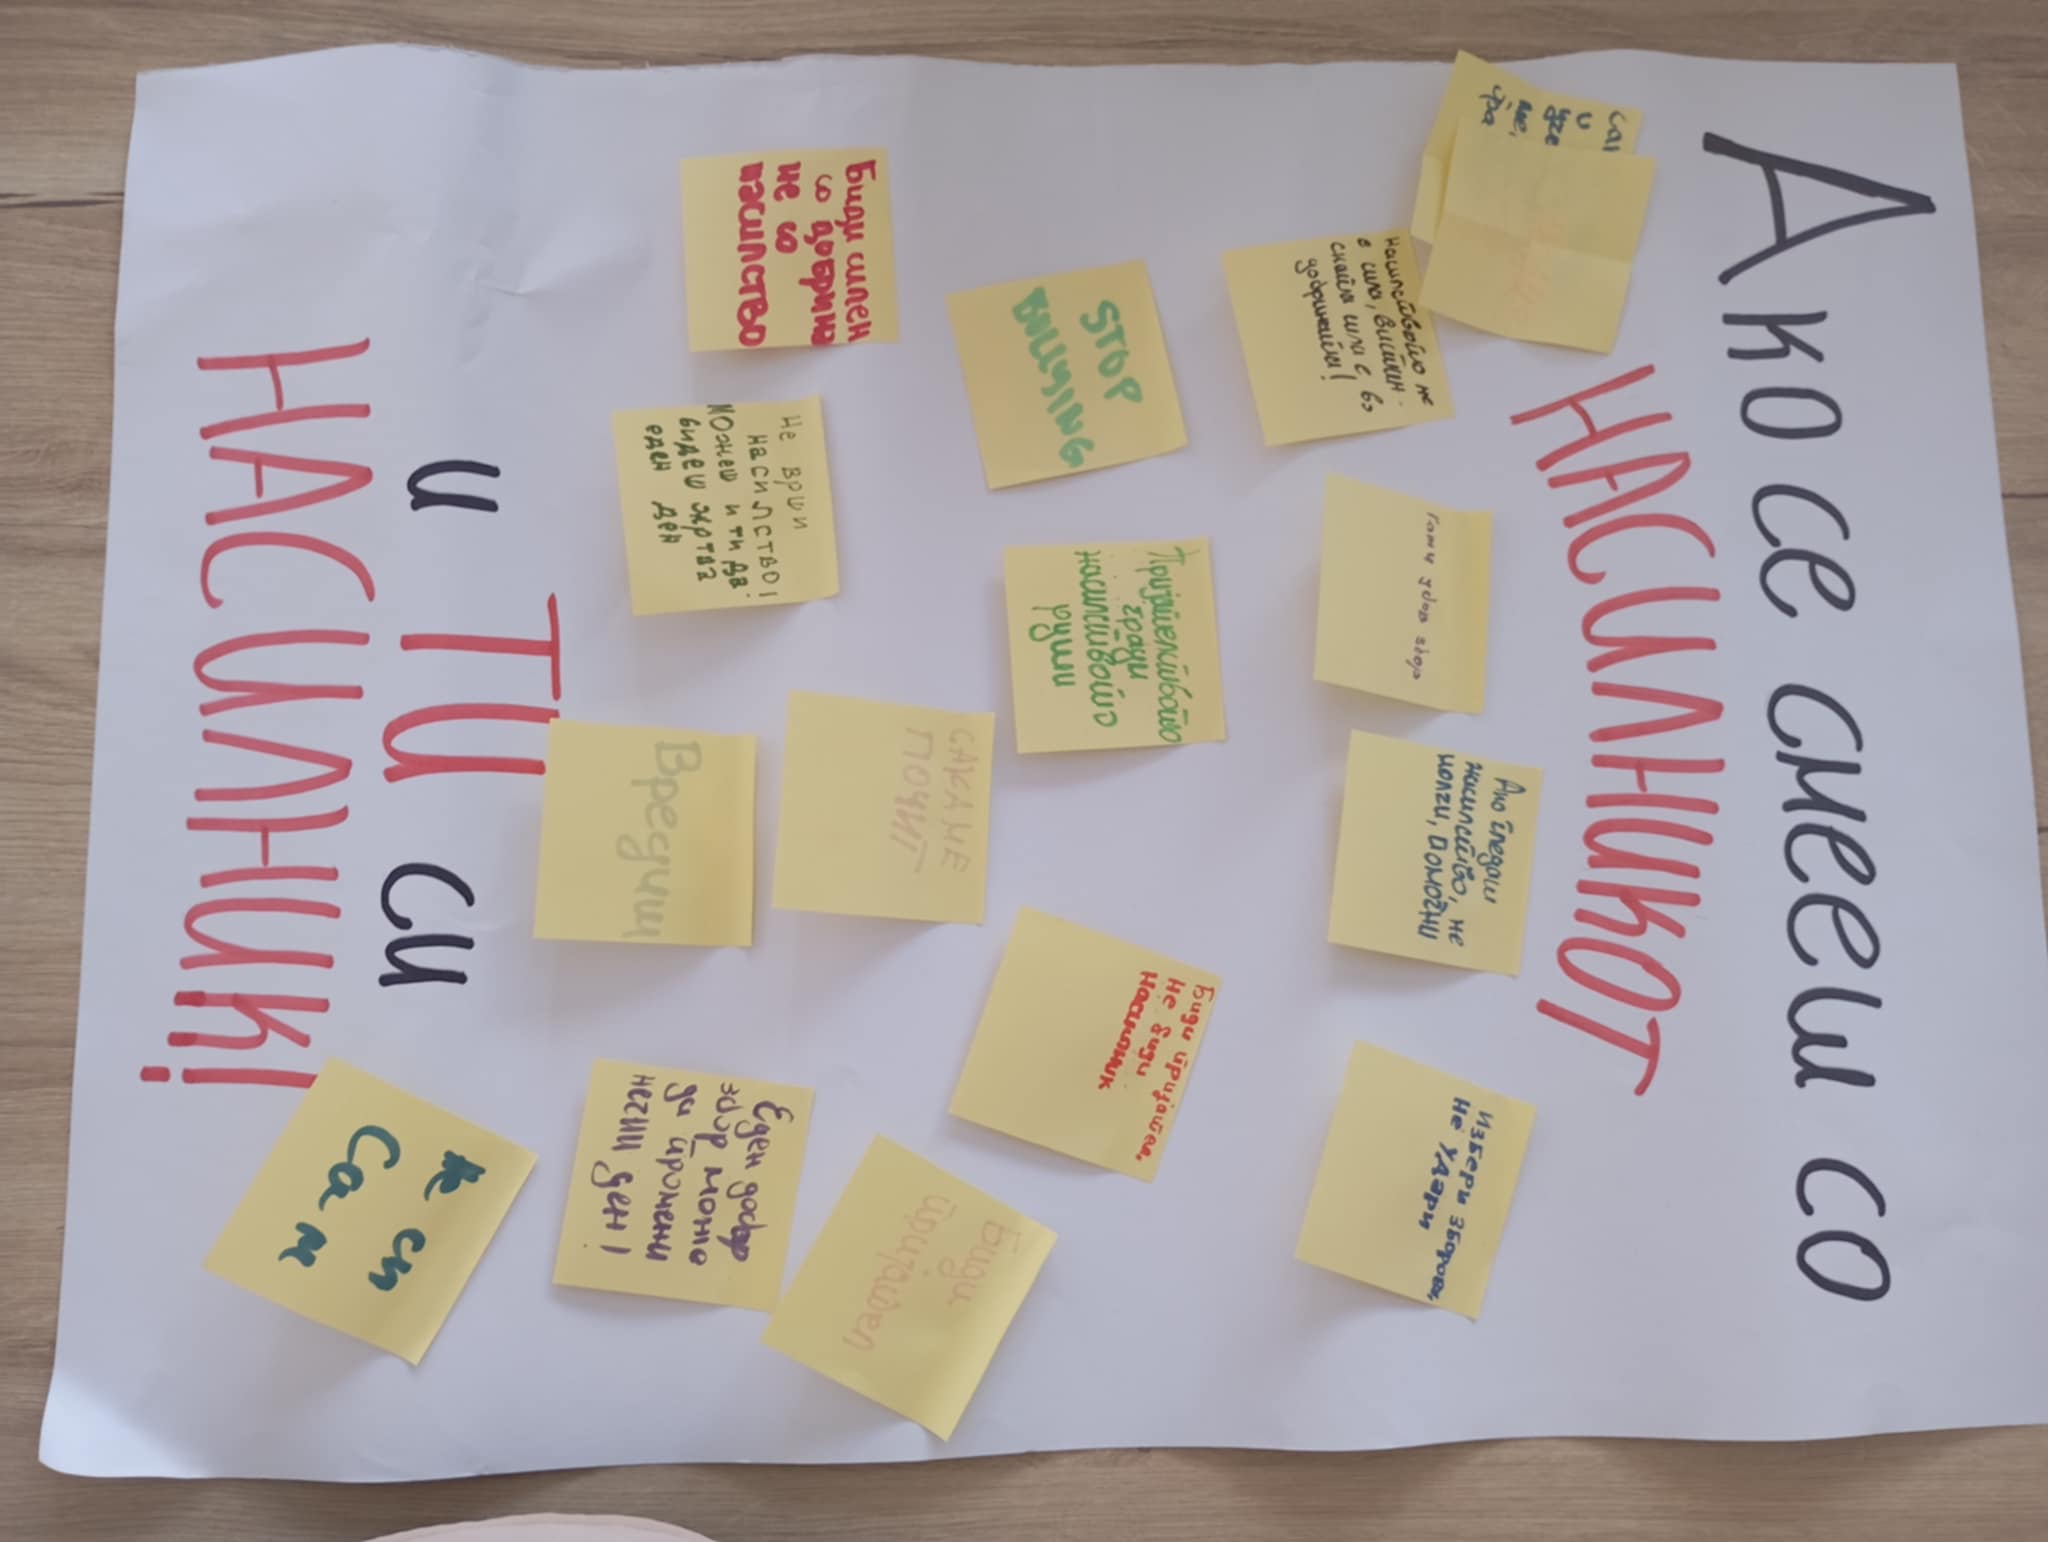 Ако се смееш со
НАСИЛНИКОТ
насилството не
е сила, вистин-
ската сила е во
добрината!
STOP
BULLYING
Биди силен
со добрина
не со
насилство
Не врши
насилство!
Можеш и ти да
бидеш жртва
еден ден
Пријателството
гради
насилството
руши
Ако гледаш
насилство, не
молчи, помогни
САКАМЕ
ПОЧИТ
Вредиш
Избери зборови,
Не удари
Биди пријател,
не биди
насилник
Биди
пријател
Еден добар
збор може
да промени
нечиј ден!
си
Сам
И ТИ СИ
НАСИЛНИК!!